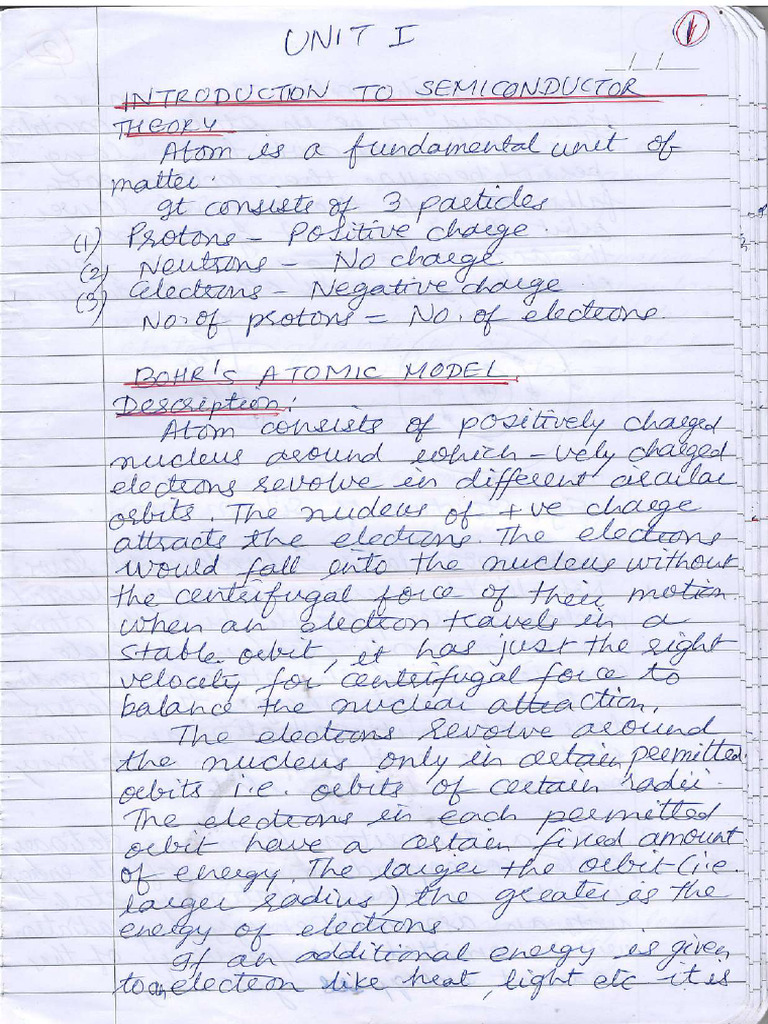 UNIT I
1
INTRODUCTION TO SEMICONDUCTOR
THEORY
Atom is a fundamental unit of
matter.
It consists of 3 particles
(1) Protons - Positive charge.
(2) Neutrons - No charge
(3) Electrons - Negative charge
No. of protons = No. of electrons.
BOHR'S ATOMIC MODEL.
Description:
Atom consists of positively charged
nucleus around which -vely charged
electrons revolve in different circular
orbits. The nucleus of +ve charge
attracts the electrons. The electrons
would fall into the nucleus without
the centrifugal force of their motion
when an electron travels in a
stable orbit, it has just the right
velocity for centrifugal force to
balance the nuclear attraction.
The electrons revolve around
the nucleus only in certain permitted
orbits i.e. orbits of certain radii.
The electrons in each permitted
orbit have a certain fixed amount
of energy. The larger the orbit (i.e.
larger radius) the greater is the
energy of electrons
If an additional energy is given
to an electron like heat, light etc it is